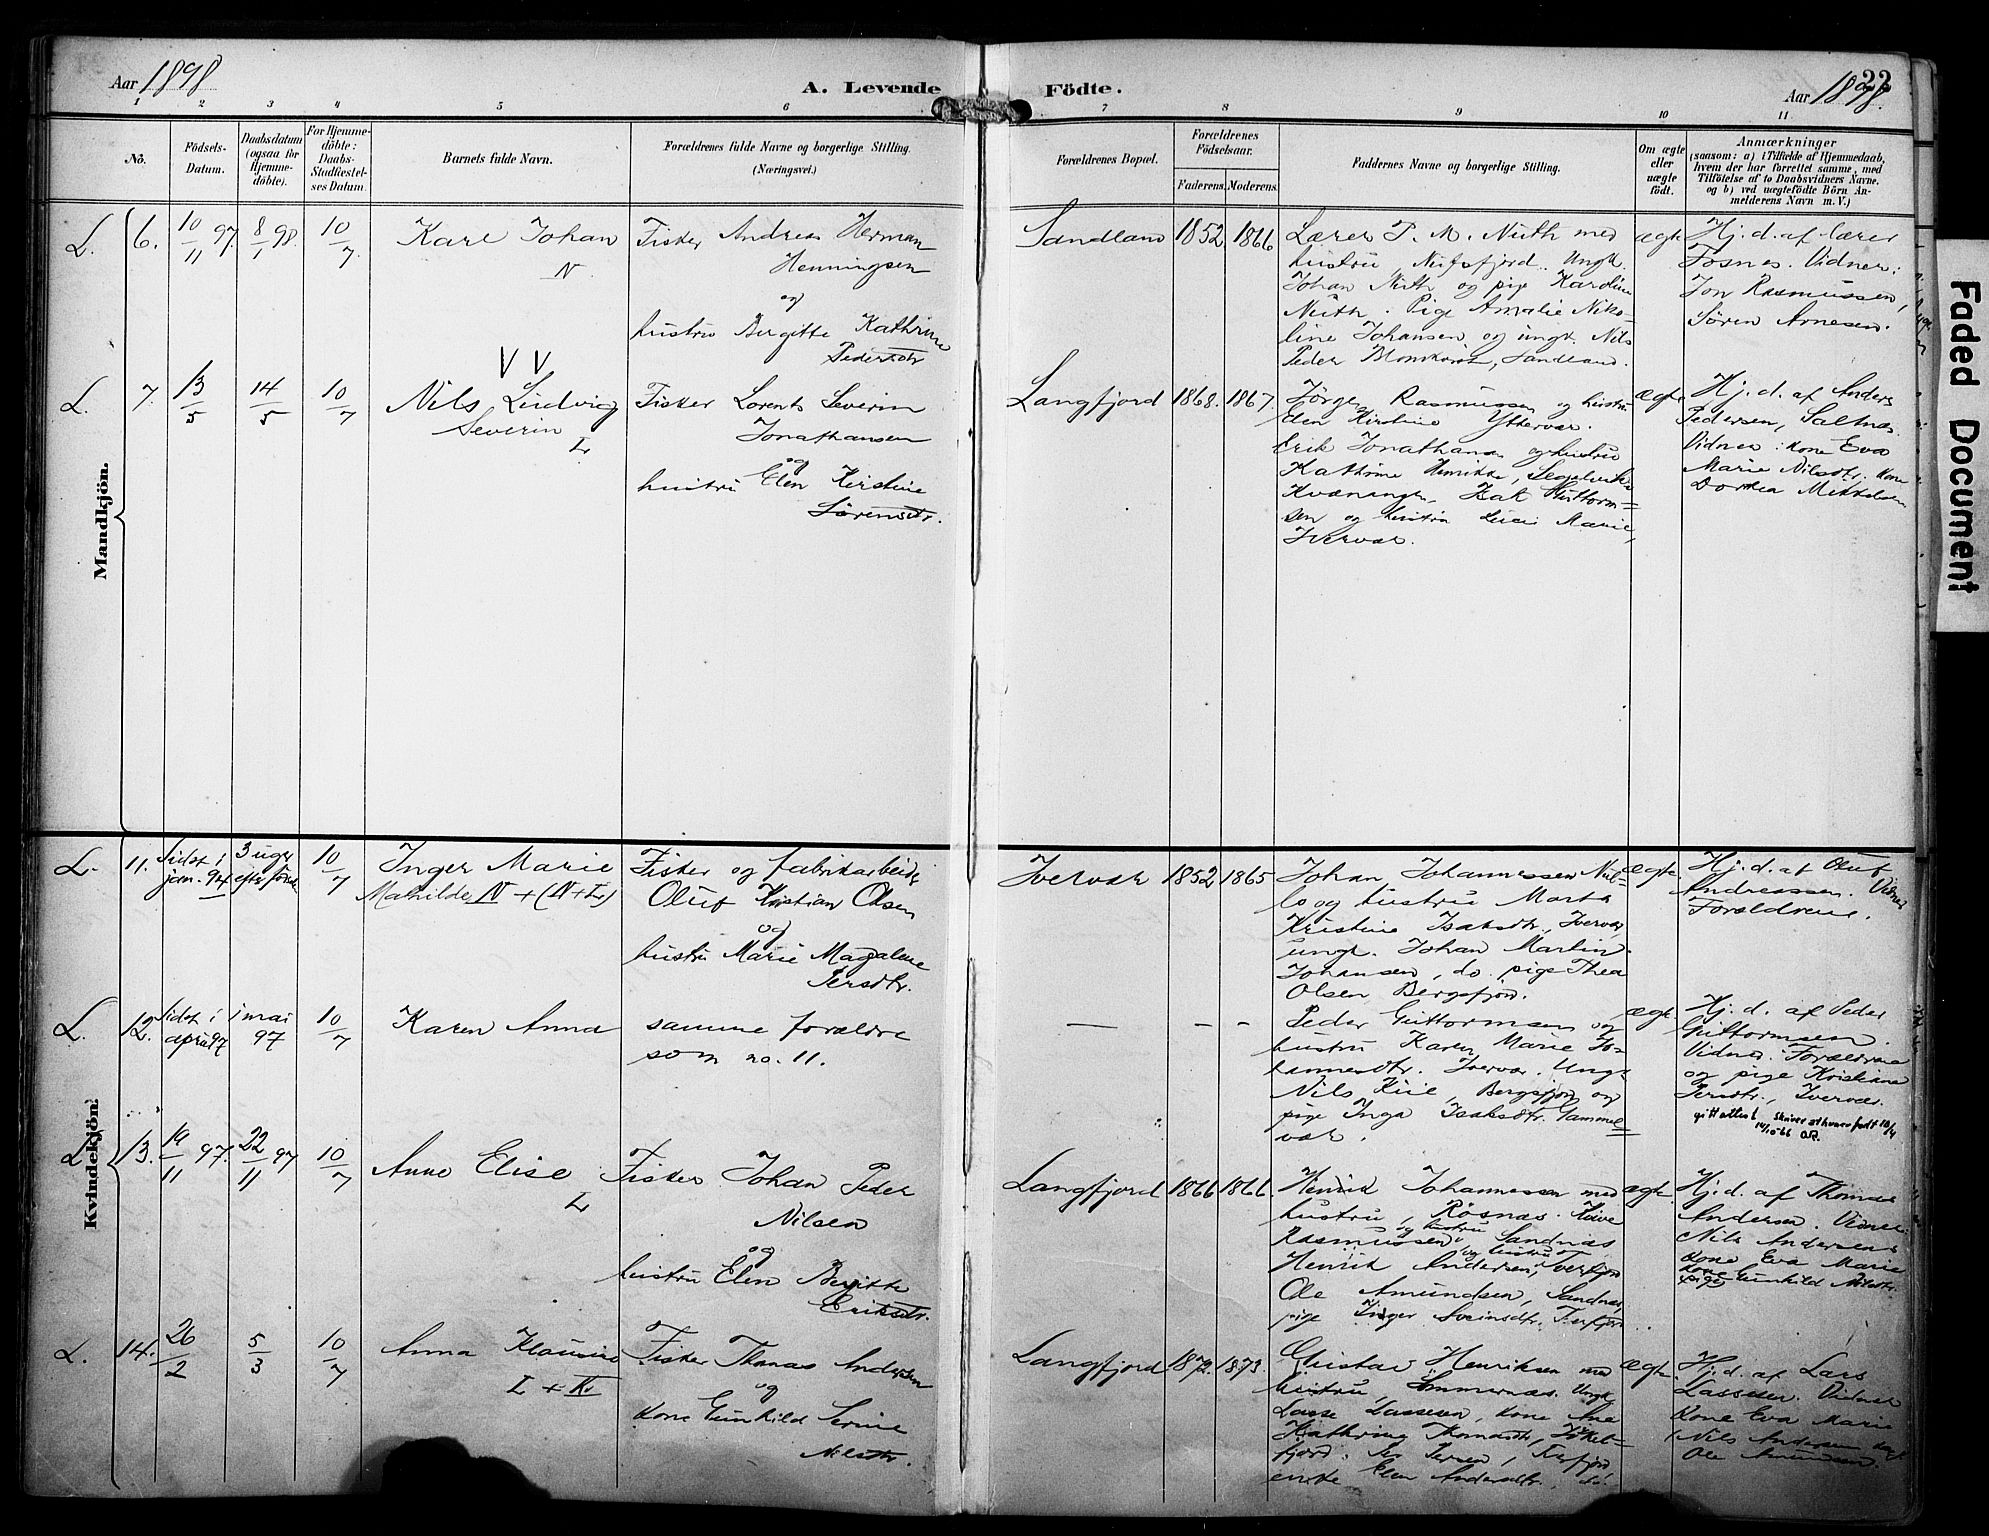 Aar 1898
A. Levende Födte.
Aar 1898.
22
1 2 3 4 5 6 7 8 9 10 11
No.
Födsels-
Datum.
Daabsdatum
(ogsaa for
Hjemme-
döbte).
For Hjemme-
döbte:
Daabs-
Stadfæstel-
ses Datum.
Barnets fulde Navn.
Forældrenes fulde Navne og borgerlige Stilling.
(Næringsvei.)
Forældrenes Bopæl.
Forældrenes
Födselsaar.
Faderens. Moderens.
Faddernes Navne og borgerlige Stilling.
Om ægte
eller
uægte
födt.
Anmærkninger
(saasom: a) i Tilfælde af Hjemmedaab,
hvem der har forrettet samme, med
Tilföielse af to Daabsvidners Navne,
og b) ved uægtefödte Börn An-
melderens Navn m. V.)
Mandkjön.
L. 6. 10/11 97. 8/1 98. 10/7
Karl Johan
N.
Fisker Andreas Herman
Henningsen
og
hustru Bergitte Kathrine
Pedersdtr
Sandland 1852 1866
Lærer P. M. Nuth med
hustru, Nufsfjord. Ungk.
Johan Nuth og pige Karoline
Nuth. Pige Amalie Niko-
line Johansen og ungk. Nils
Peder, Sandland.
ægte
Hj. d. af lærer
Fosnes. Vidner:
Jon Rasmussen,
Sören Arnesen.
L. 7. 13/5 14/5 10/7
V V
Nils Ludvig
Severin
L
Fisker Lorents Severin
Jonathansen
og
hustru Elen Kirstine
Sörensdtr.
Langfjord 1868. 1867.
Jörgen Rasmussen og hustru
Elen Kirstine Yttervær.
Erik Jonathans og hustru
Kathrine Henrikke, Segelvik
Kvænangen, Isak Guttorm=
sen og hustru Marie,
Ivervær.
ægte
Hj. d. af Anders
Pedersen, Saltnæs.
Vidner: kone Eva
Marie Nilsdtr. kone
Dorthea Mikkelsen
Kvindekjön.
L. 11. sidst i
jan. 94
3 uger
efter föds.
10/7
Inger Marie
Mathilde N + (N+L)
Fisker og fabrikarbeider
Oluf Kristian Olsen
og
hustru Marie Magdalene
Persdtr.
Ivervær 1852 1865
Johan Johannessen
og hustru Marta
Kristine Isaksdtr., Ivervær,
ungk. Johan Martin
Johansen, do. pige Thea
Olsen Bergsfjord.
ægte
Hj. d. af Oluf
Andreassen. Vidner
Forældrene.
L. 12. sidst i
april 97
i mai
97
10/7
Karen Anna
samme forældre
som no. 11.
— - -
Peder Guttormsen og
hustru Karen Marie Jo-
hannesdtr. Ivervær. Ungk
Nils Kiil, Bergsfjord og
pige Inga Isaksdtr. Gammel=
vær.
ægte
Hj. d. af Peder
Guttormsen.
Vidner: Forældrene
og pige Kristiane
Persdtr., Ivervær.
gitt attest. Skriver at hun er født 10/4
14/10-66 OR.
L 13. 19/11 97. 22/11 97 10/7
Anne Elise
L
Fisker Johan Peder
Nilsen
og
hustru Elen Bergitte
Eriksdtr.
Langfjord 1866 1866.
Henrik Johannessen med
hustru, Røsnæs. Iver
Rasmussen og hustru Sandnæs
Henrik Andersen, og hustru Tverfjord
Ole Amundsen, Sandnæs,
pige Inger Sveinsdtr. Tverfjord
ægte
Hj. d. af Thomas
Andersen. Vidner:
Nils Andersens
kone Eva Marie
pige Gunhild Nilsdtr.
L. 14. 26/2 5/3 10/7
Anna Klausine
L + K.
Fisker Thomas Andersen
og
kone Gunhild Serine
Nilsdtr.
Langfjord 1872. 1873.
Gustav Henriksen med
hustru, Sommernæs. Ungk
Lasse Lassesen, kone Ane
Kathrine Thomasdtr, Jökel=
fjord. Per Persen, Tverfjord
enke Elen Andersdtr, do.
ægte
Hj. d. af Lars
Lassesen. Vidner
kone Eva Marie
(Nils Andersen
Ole Amundsen.
Faded Document